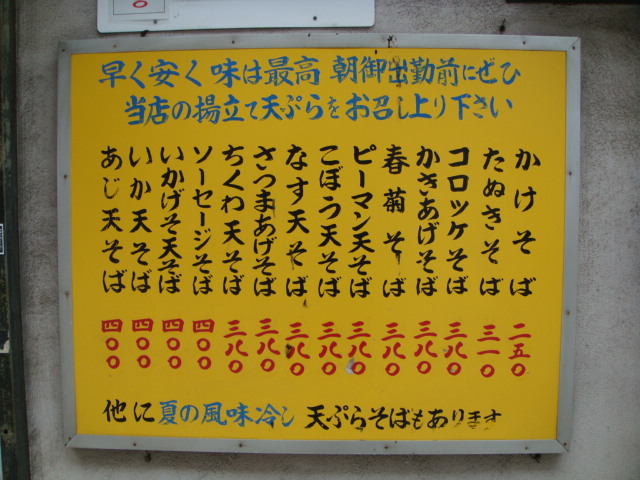 早く安く味は最高 朝御出勤前にぜひ
当店の揚立て天ぷらをお召し上り下さい
かけそば 二五〇
たぬきそば 三一〇
コロッケそば 三八〇
かきあげそば 三八〇
春菊そば 三八〇
ピーマン天そば 三八〇
ごぼう天そば 三八〇
なす天そば 三八〇
さつまあげそば 三八〇
ちくわ天そば 三八〇
ソーセージそば 四〇〇
いかげそ天そば 四〇〇
いか天そば 四〇〇
あじ天そば 四〇〇
他に夏の風味冷し 天ぷらそばもあります